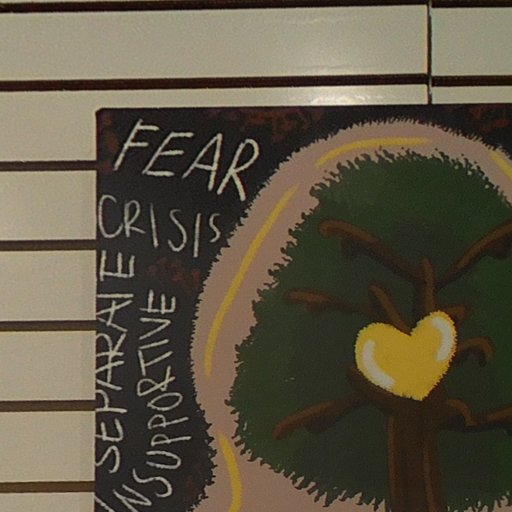 FEAR
CRISIS
SEPARATE
UNSUPPORTIVE